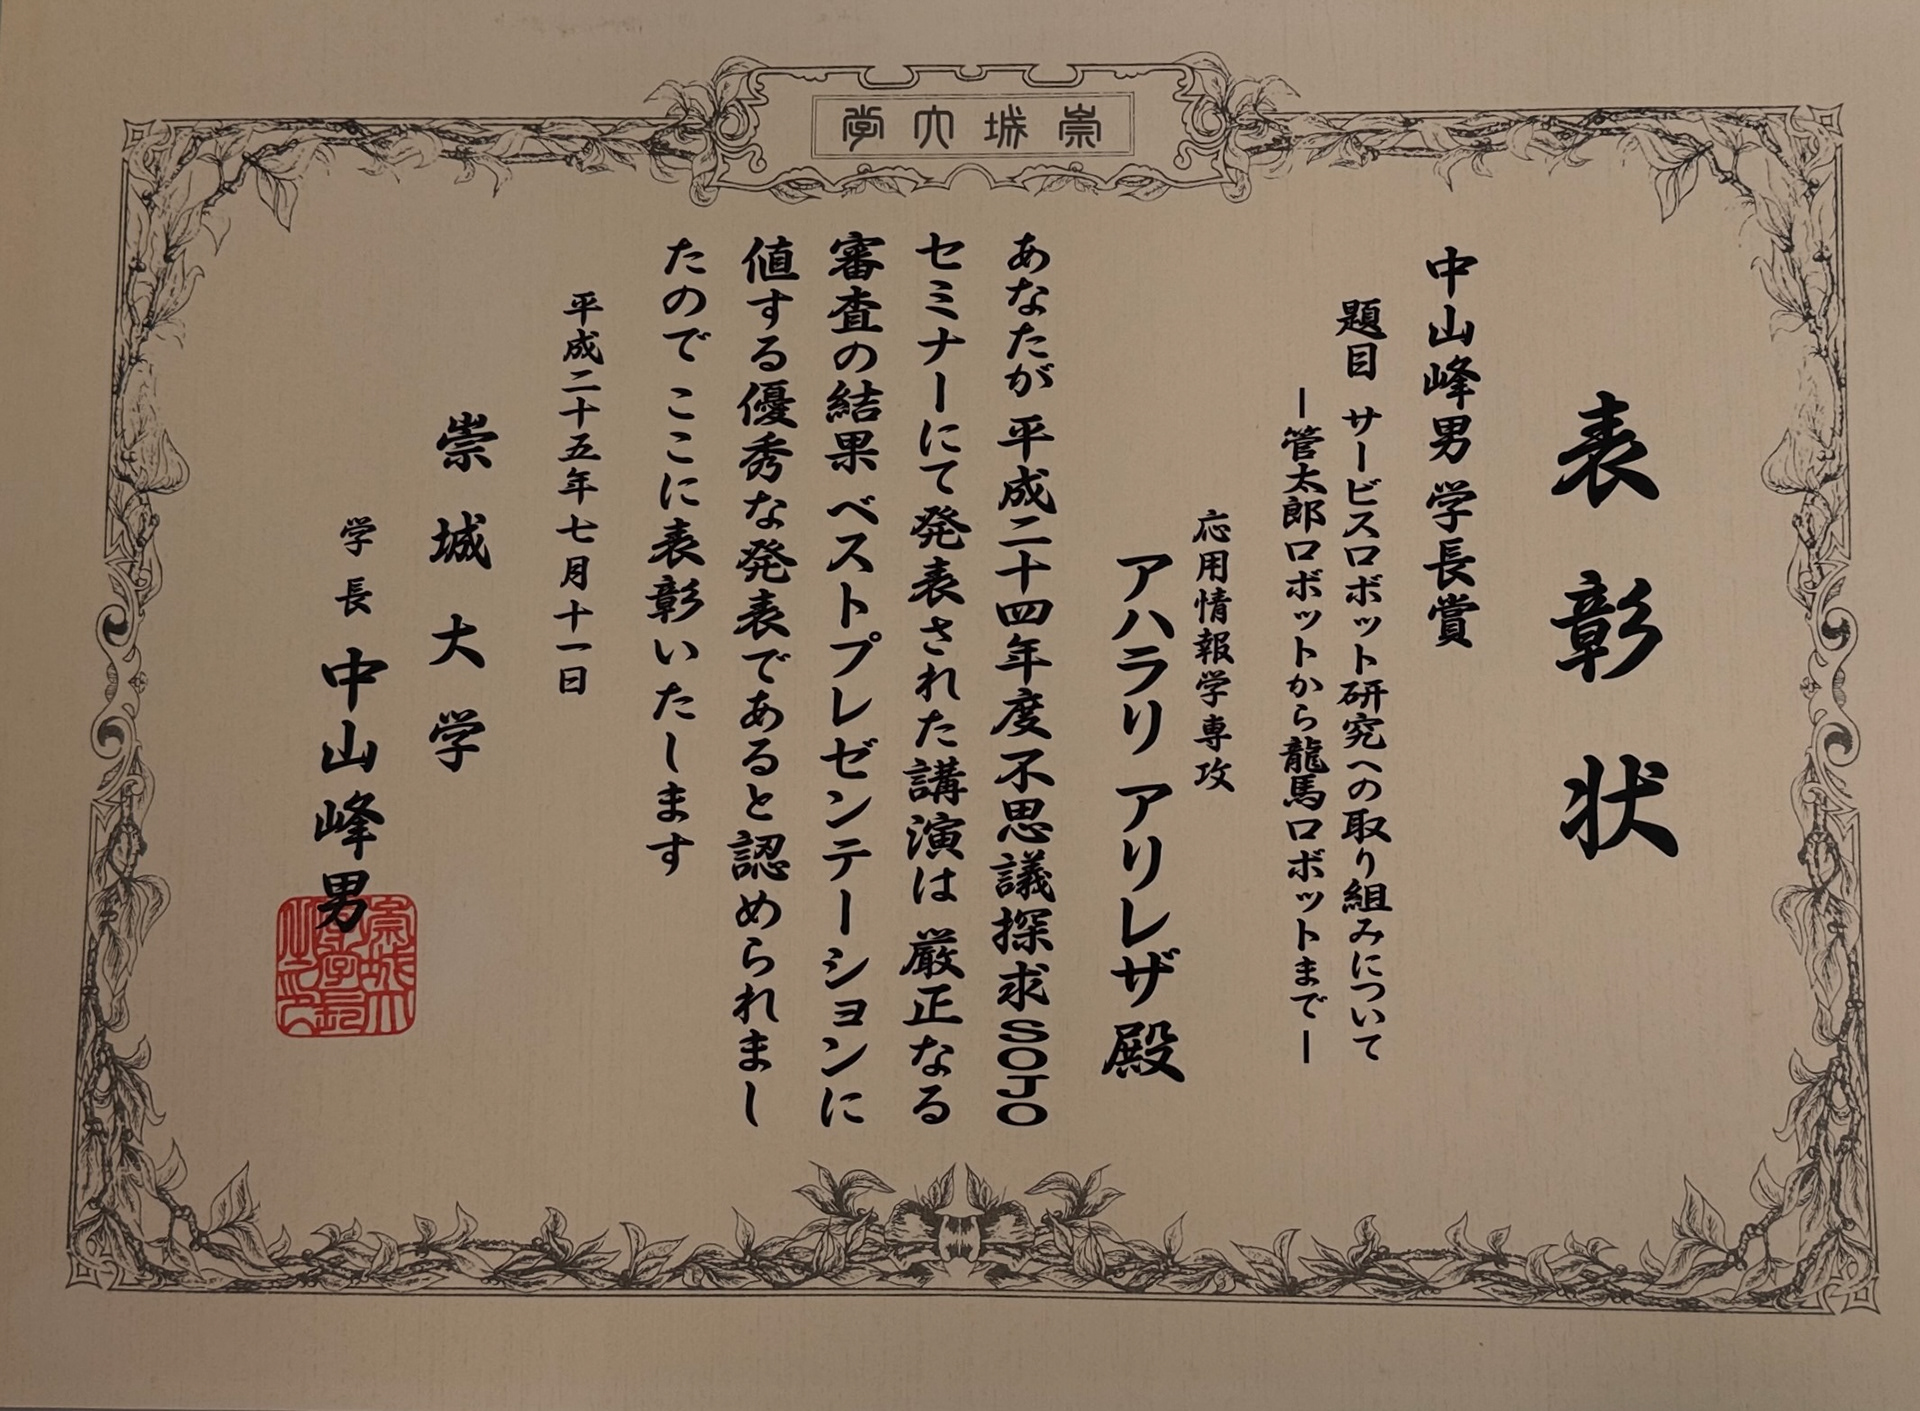 崇城大学
表彰状
中山峰男学長賞
題目 サービスロボット研究への取り組みについて
ー管太郎ロボットから龍馬ロボットまでー
応用情報学専攻
アハラリ アリレザ 殿
あなたが 平成二十四年度不思議探求SOJO
セミナーにて発表された講演は 厳正なる
審査の結果 ベストプレゼンテーションに
値する優秀な発表であると認められまし
たので ここに表彰いたします
平成二十五年七月十一日
崇城大学
学長 中山峰男